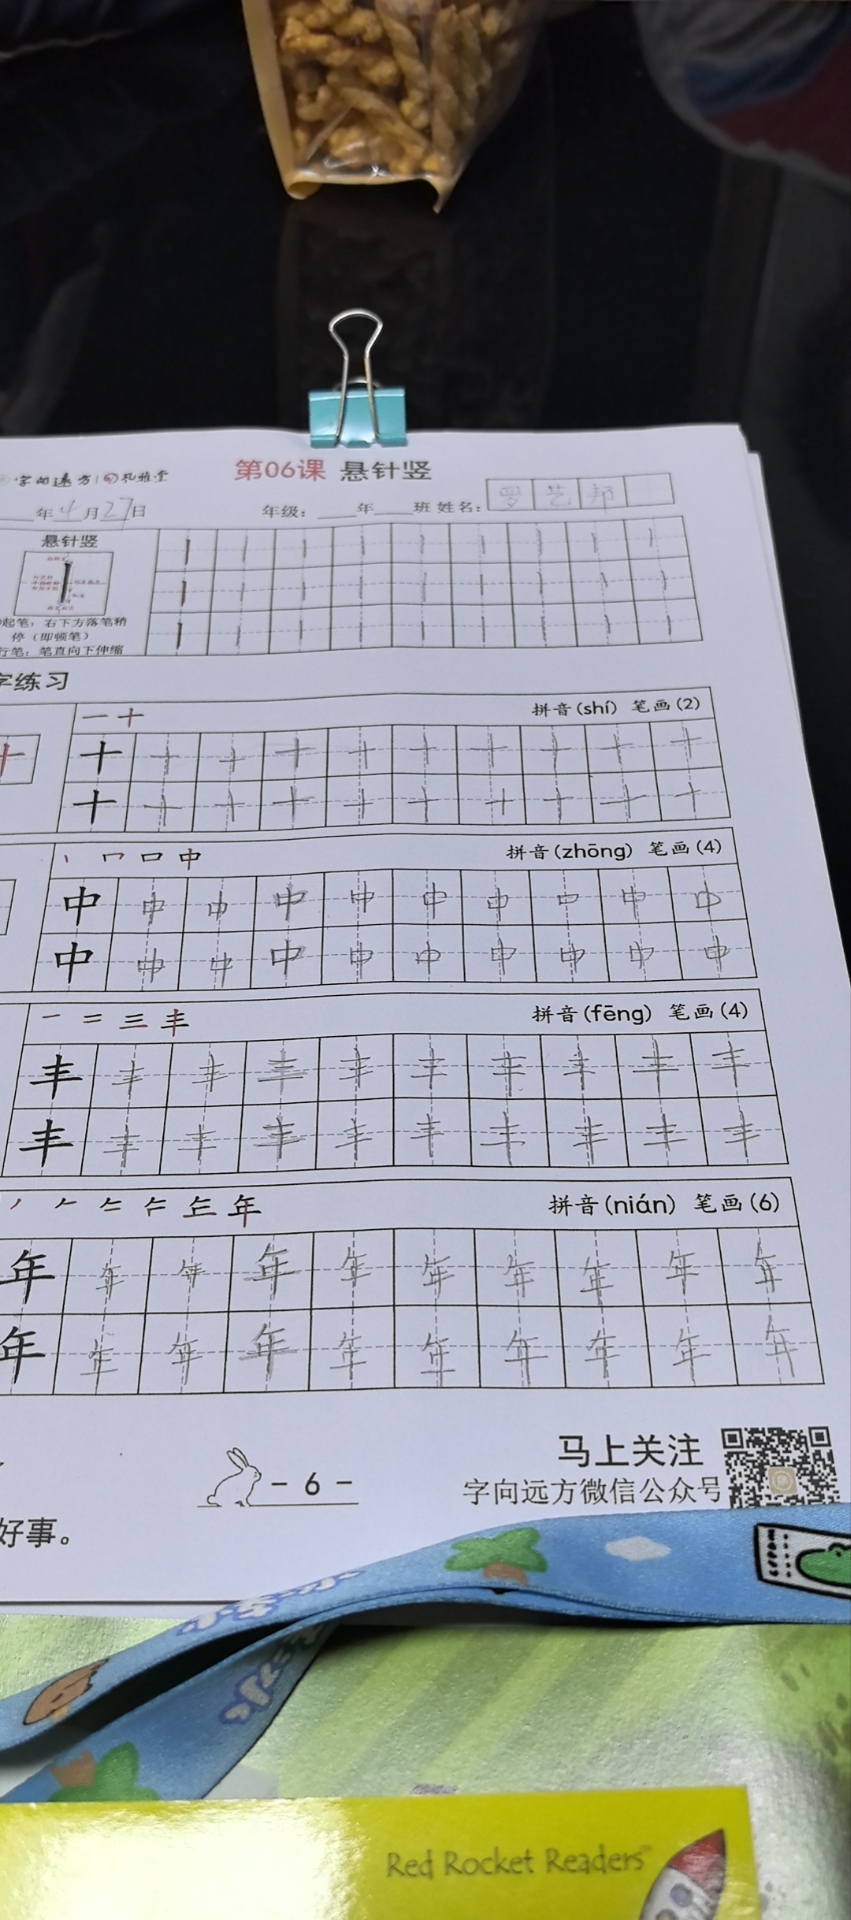 字向远方 礼雅堂
第06课 悬针竖
年4月27日 年级: 年 班 姓名: 罗艺邦
悬针竖
起笔: 右下方落笔稍
停（即顿笔）
行笔: 笔直向下伸缩
字练习
一 十 拼音(shí) 笔画(2)
十 十 十 十 十 十 十 十 十 十
十 十 十 十 十 十 十 十 十 十
丨 口 中 拼音(zhōng) 笔画(4)
中 中 中 中 中 中 中 中 中 中
中 中 中 中 中 中 中 中 中 中
一 二 三 丰 拼音(fēng) 笔画(4)
丰 丰 丰 丰 丰 丰 丰 丰 丰 丰
丰 丰 丰 丰 丰 丰 丰 丰 丰 丰
年 拼音(nián) 笔画(6)
年 年 年 年 年 年 年 年 年 年
年 年 年 年 年 年 年 年 年 年
马上关注
- 6 -
字向远方微信公众号
好事。
Red Rocket Readers